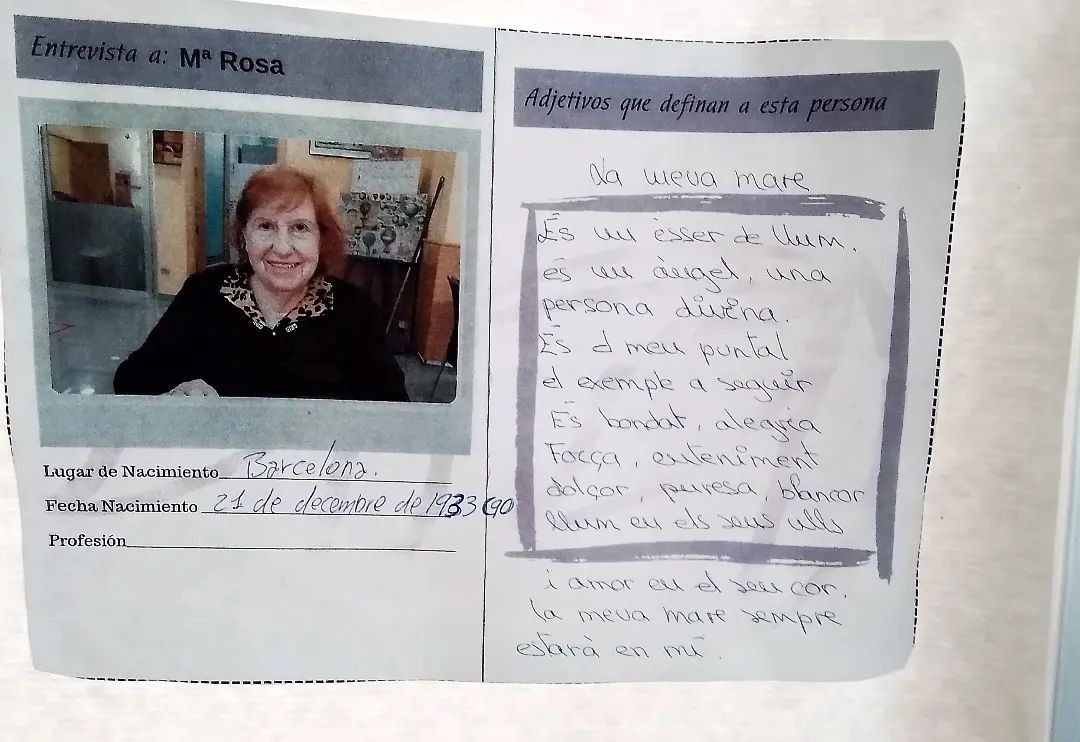 Entrevista a: Mª Rosa
Lugar de Nacimiento Barcelona.
Fecha Nacimiento 21 de decembre de 1933 (90
Profesión
Adjetivos que definan a esta persona
La meva mare
És un ésser de llum.
és un àngel, una
persona divina.
És el meu puntal
el exemple a seguir
És bondat, alegria
Força, enteniment
dolçor, puresa, blancor
llum en els seus ulls
i amor en el seu cor.
la meva mare sempre
estarà en mi.